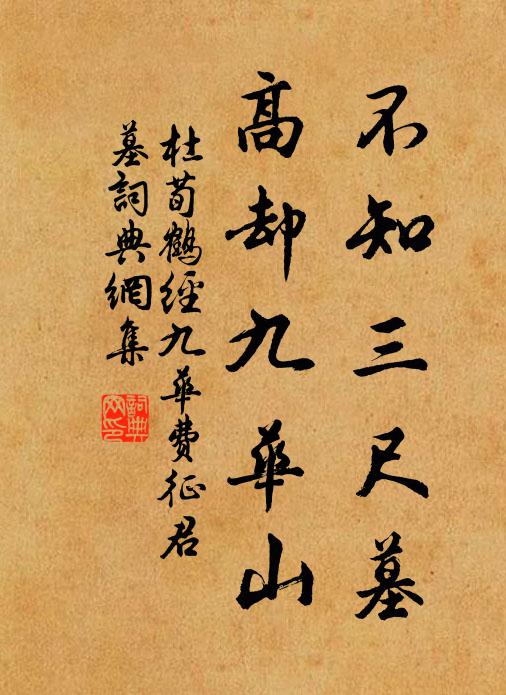 不知三尺墓
高却九華山
杜荀鶴經九華費征君
墓詞典網集
詞典网印